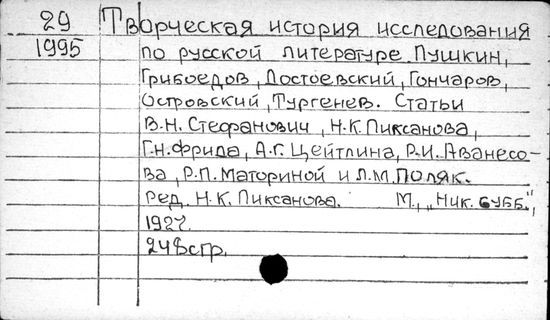 29 Творческая история исследования
1995 по русской литературе Пушкин,
Грибоедов, Достоевский, Гончаров,
Островский, Тургенев. Статьи
В.Н. Стефанович, Н.К. Пиксанова,
Г.Н. Фрида, А.Г. Цейтлина, Р.И. Аванесо-
ва, Р.П. Маториной и Л.М. Поляк.
Ред. Н.К. Пиксанова. М., „Ник. субб.",
1927.
248стр.